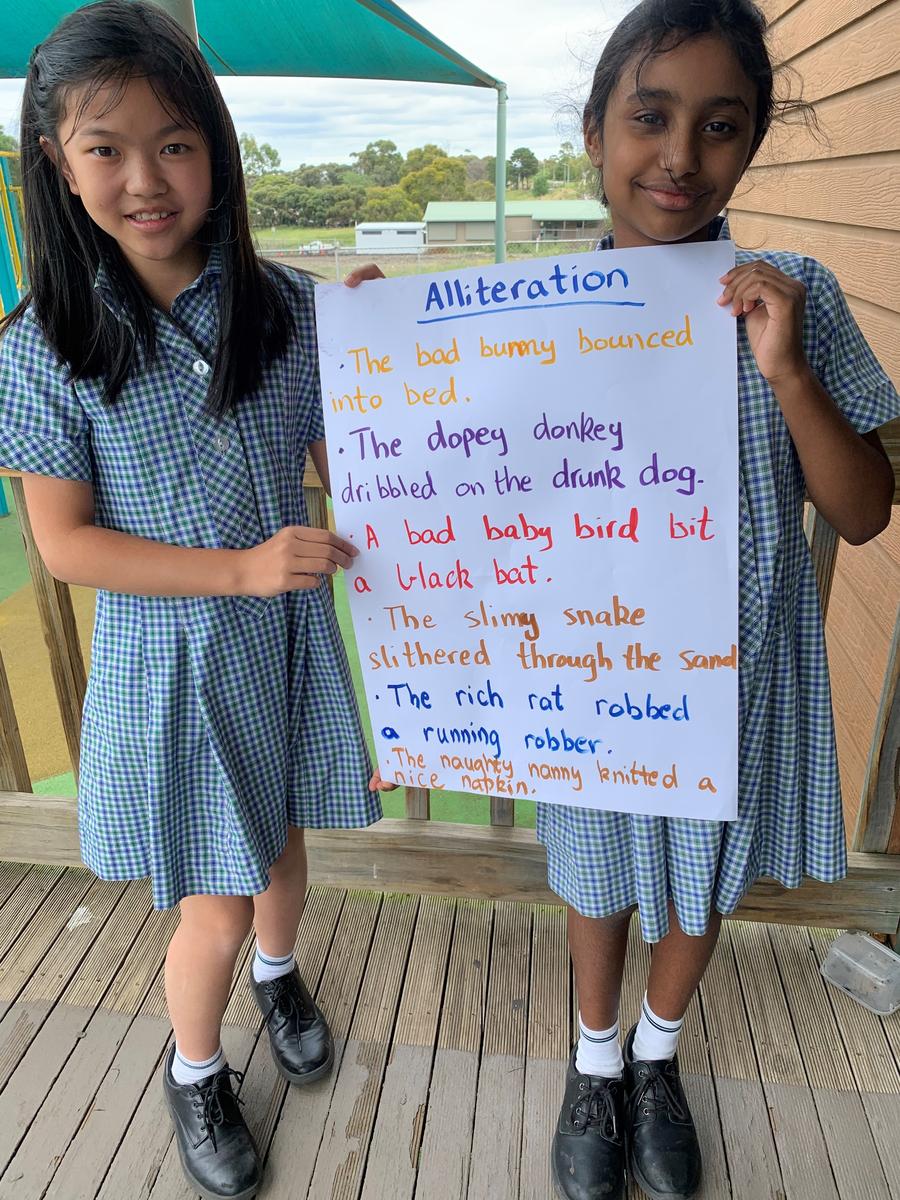 Alliteration
· The bad bunny bounced
into bed.
· The dopey donkey
dribbled on the drunk dog.
· A bad baby bird bit
a black bat.
· The slimy snake
slithered through the sand
· The rich rat robbed
a running robber.
· The naughty nanny knitted a
nice napkin.